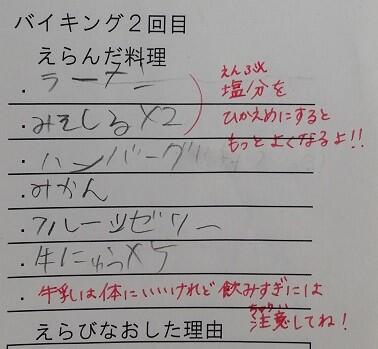 バイキング2回目
えらんだ料理
・ラーメン
・みそしる×2
えんぶん
塩分を
ひかえめにすると
もっとよくなるよ!!
・ハンバーグ
・みかん
・フルーツゼリー
・牛にゅう×5
・牛乳は体にいいけれど飲みすぎには
ちゅうい
注意してね!
えらびなおした理由